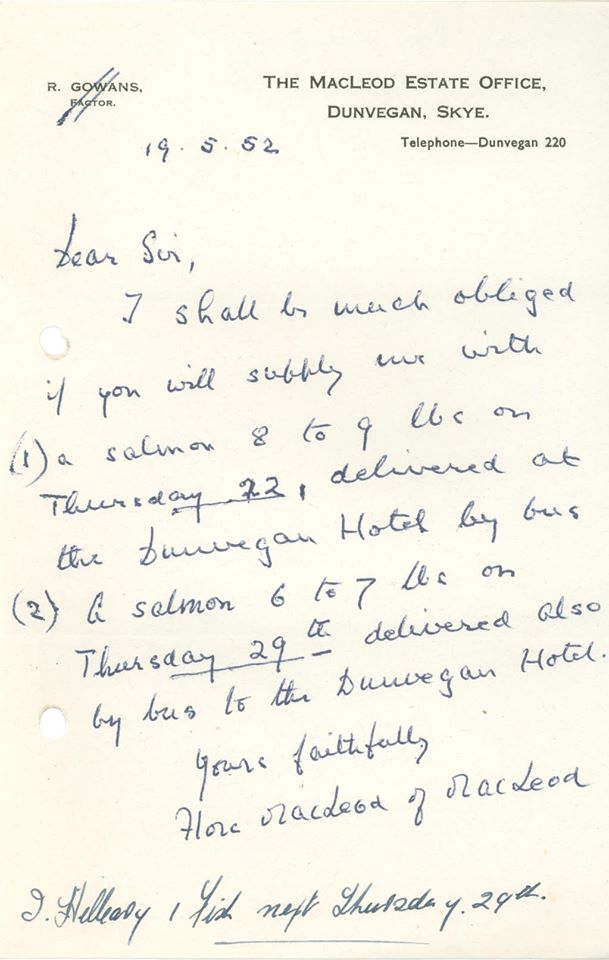 R. GOWANS,
FACTOR.
THE MACLEOD ESTATE OFFICE,
DUNVEGAN, SKYE.
Telephone—Dunvegan 220
19.5.52
Dear Sir,
I shall be much obliged
if you will supply me with
(1) a salmon 8 to 9 lbs on
Thursday 22, delivered at
the Dunvegan Hotel by bus
(2) A salmon 6 to 7 lbs on
Thursday 29th delivered also
by bus to the Dunvegan Hotel.
Yours faithfully
Flora MacLeod of MacLeod
1 Fish next Thursday. 29th.